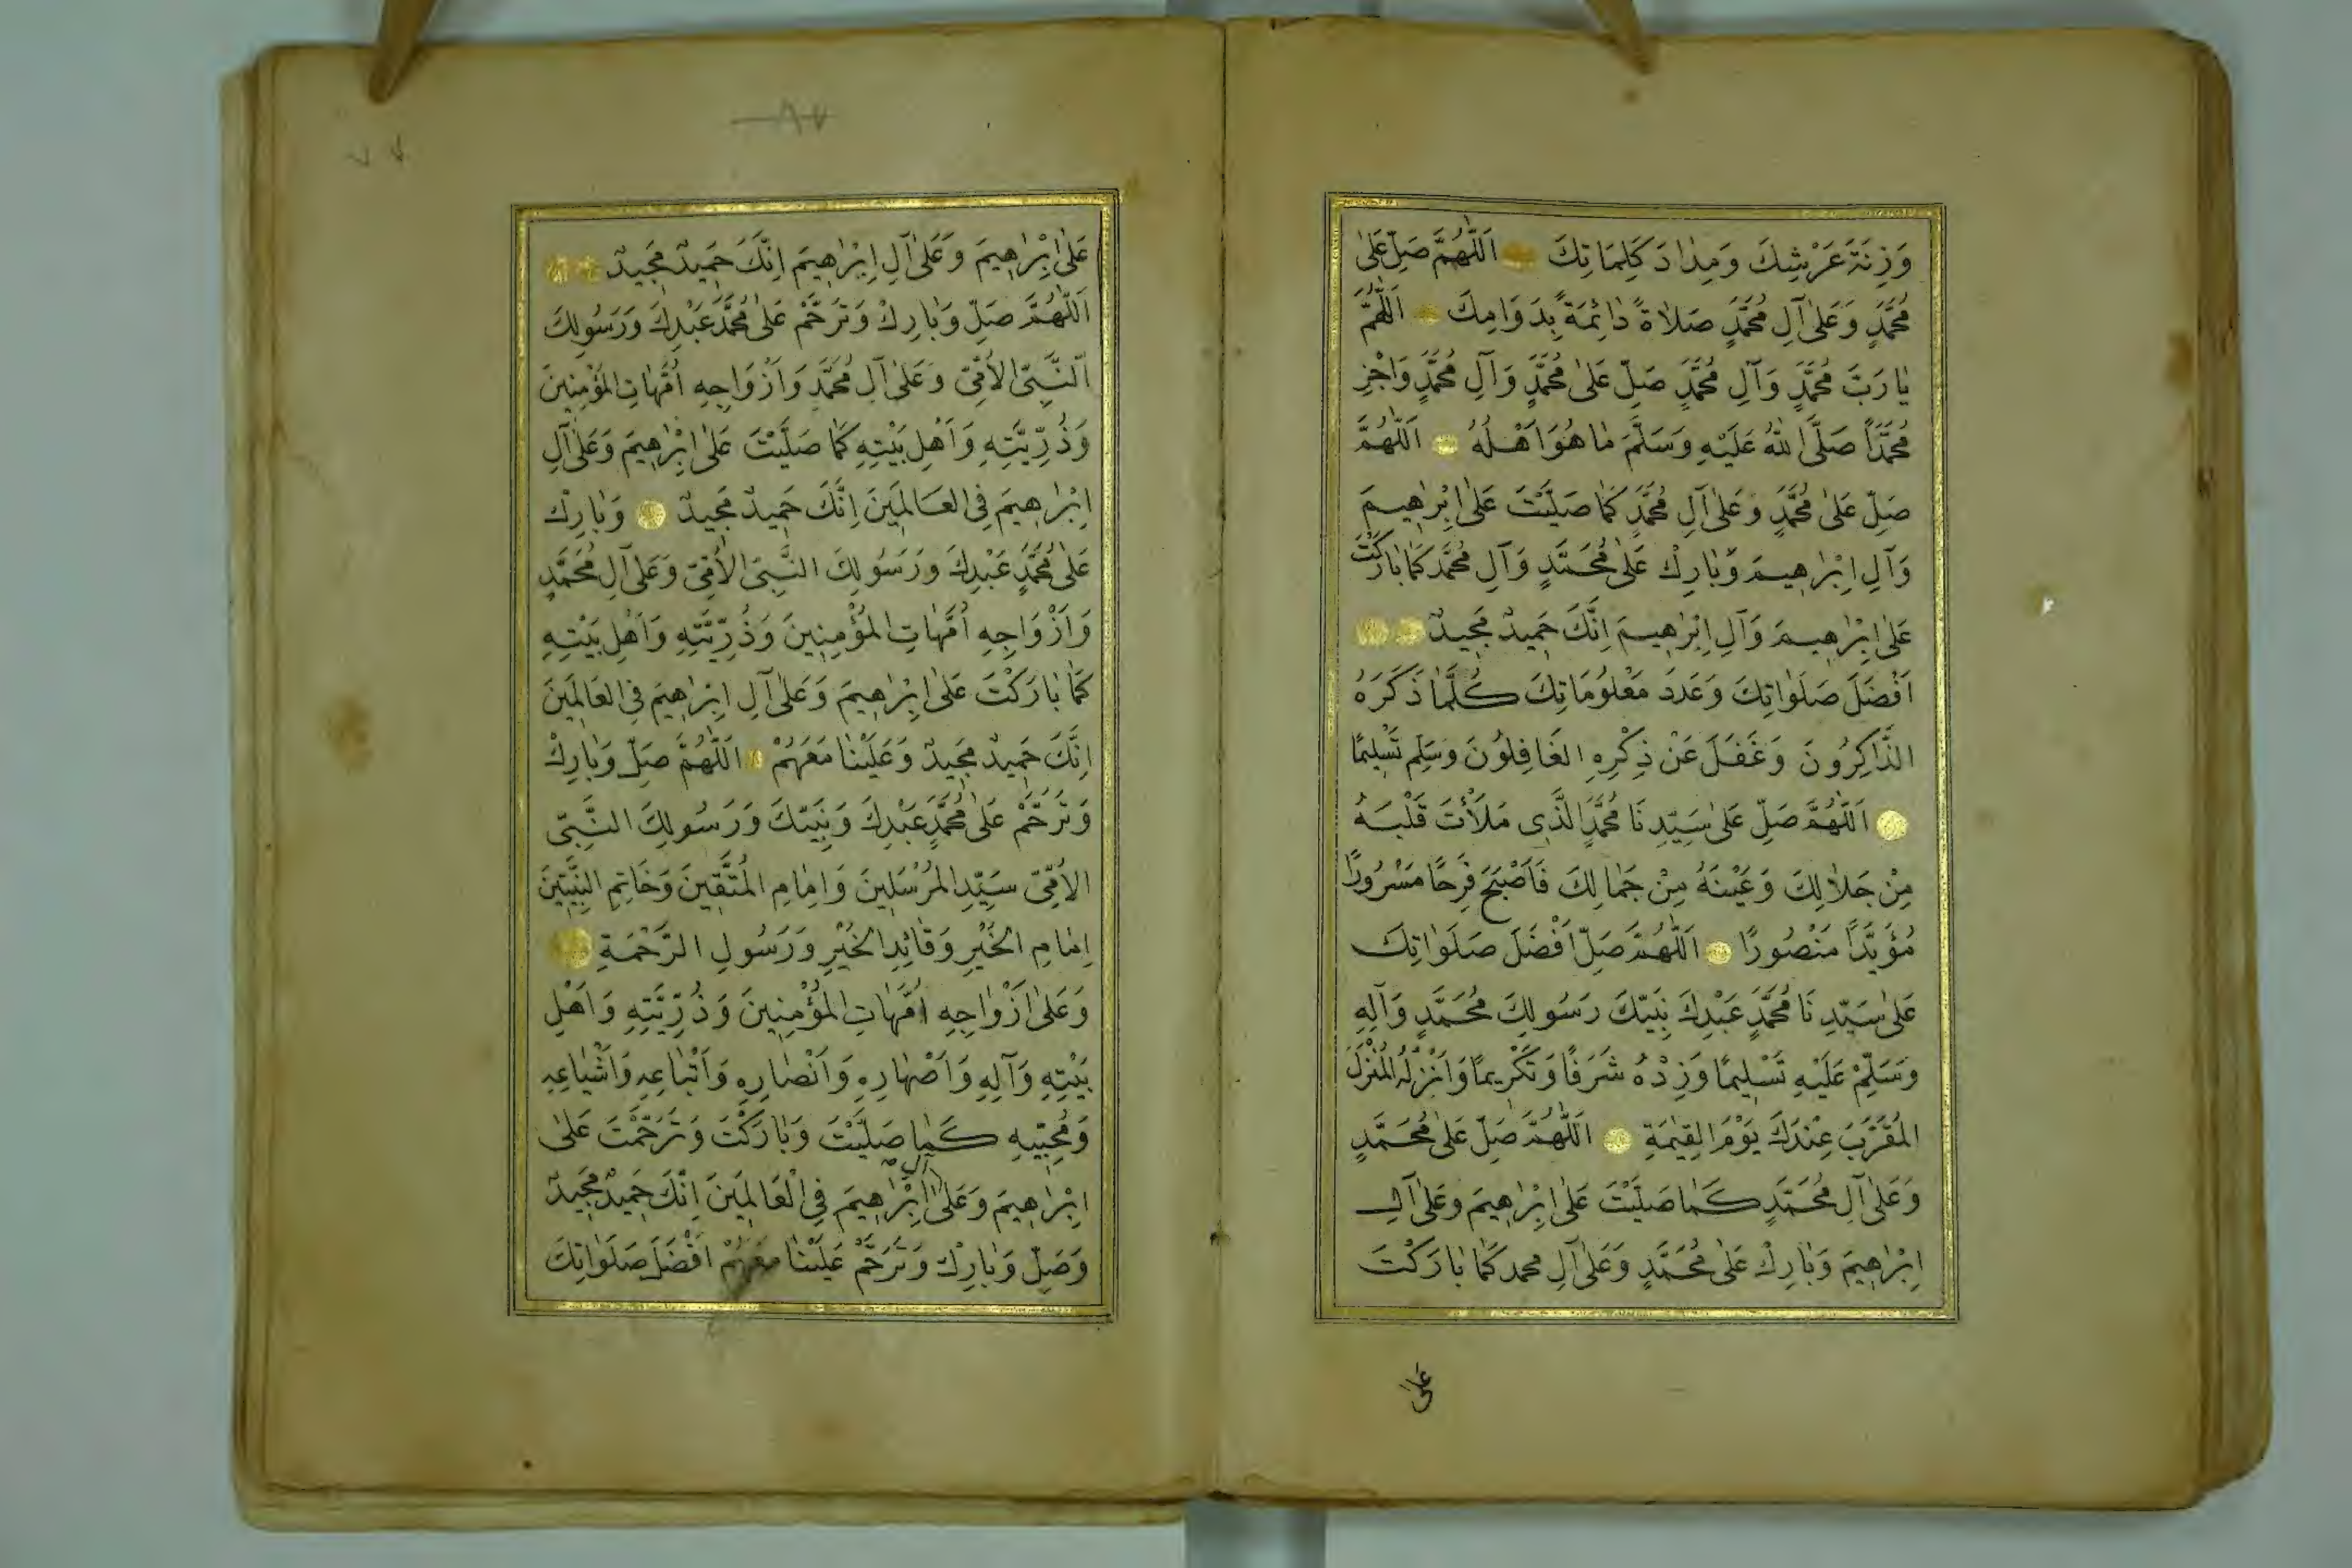 وَزِنَةَ عَرْشِكَ وَمِدَادَ كَلِمَاتِكَ اَللّٰهُمَّ صَلِّ عَلٰى
مُحَمَّدٍ وَعَلٰى آلِ مُحَمَّدٍ صَلَاةً دَائِمَةً بِدَوَامِكَ اَللّٰهُمَّ
يَا رَبَّ مُحَمَّدٍ وَآلِ مُحَمَّدٍ صَلِّ عَلٰى مُحَمَّدٍ وَآلِ مُحَمَّدٍ وَاَجْزِ
مُحَمَّدًا صَلَّى اللهُ عَلَيْهِ وَسَلَّمَ مَا هُوَ اَهْلُهُ اَللّٰهُمَّ
صَلِّ عَلٰى مُحَمَّدٍ وَعَلٰى آلِ مُحَمَّدٍ كَمَا صَلَّيْتَ عَلٰى اِبْرٰهِيمَ
وَآلِ اِبْرٰهِيمَ وَبَارِكْ عَلٰى مُحَمَّدٍ وَآلِ مُحَمَّدٍ كَمَا بَارَكْتَ
عَلٰى اِبْرٰهِيمَ وَآلِ اِبْرٰهِيمَ اِنَّكَ حَمِيدٌ مَجِيدٌ
اَفْضَلَ صَلَوَاتِكَ وَعَدَدَ مَعْلُومَاتِكَ كُلَّمَا ذَكَرَهُ
الذَّاكِرُونَ وَغَفَلَ عَنْ ذِكْرِهِ الغَافِلُونَ وَسَلِّم تَسْلِيمًا
اَللّٰهُمَّ صَلِّ عَلٰى سَيِّدِنَا مُحَمَّدٍ الَّذِى مَلَأْتَ قَلْبَهُ
مِنْ جَلَالِكَ وَعَيْنَهُ مِنْ جَمَالِكَ فَاَصْبَحَ فَرِحًا مَسْرُورًا
مُؤَيَّدًا مَنْصُورًا اَللّٰهُمَّ صَلِّ اَفْضَلَ صَلَوَاتِكَ
عَلٰى سَيِّدِنَا مُحَمَّدٍ عَبْدِكَ نَبِيِّكَ رَسُولِكَ مُحَمَّدٍ وَآلِهِ
وَسَلِّمْ عَلَيْهِ تَسْلِيمًا وَزِدْهُ شَرَفًا وَتَكْرِيمًا وَاَنْزِلْهُ المُنْزَلَ
المُقَرَّبَ عِنْدَكَ يَوْمَ القِيٰمَةِ اَللّٰهُمَّ صَلِّ عَلٰى مُحَمَّدٍ
وَعَلٰى آلِ مُحَمَّدٍ كَمَا صَلَّيْتَ عَلٰى اِبْرٰهِيمَ وَعَلٰى آلِ
اِبْرٰهِيمَ وَبَارِكْ عَلٰى مُحَمَّدٍ وَعَلٰى آلِ محمد كَمَا بَارَكْتَ
عَلٰى
٨٧
عَلٰى اِبْرٰهِيمَ وَعَلٰى آلِ اِبْرٰهِيمَ اِنَّكَ حَمِيدٌ مَجِيدٌ
اَللّٰهُمَّ صَلِّ وَبَارِكْ وَتَرَحَّمْ عَلٰى مُحَمَّدٍ عَبْدِكَ وَرَسُولِكَ
اَلنَّبِىِّ الاُمِّىِّ وَعَلٰى آلِ مُحَمَّدٍ وَاَزْوَاجِهِ اُمَّهَاتِ المُؤْمِنِينَ
وَذُرِّيَّتِهِ وَاَهْلِ بَيْتِهِ كَمَا صَلَّيْتَ عَلٰى اِبْرٰهِيمَ وَعَلٰى آلِ
اِبْرٰهِيمَ فِى العَالَمِينَ اِنَّكَ حَمِيدٌ مَجِيدٌ وَبَارِكْ
عَلٰى مُحَمَّدٍ عَبْدِكَ وَرَسُولِكَ النَّبِىِّ الاُمِّىِّ وَعَلٰى آلِ مُحَمَّدٍ
وَاَزْوَاجِهِ اُمَّهَاتِ المُؤْمِنِينَ وَذُرِّيَّتِهِ وَاَهْلِ بَيْتِهِ
كَمَا بَارَكْتَ عَلٰى اِبْرٰهِيمَ وَعَلٰى آلِ اِبْرٰهِيمَ فِى العَالَمِينَ
اِنَّكَ حَمِيدٌ مَجِيدٌ وَعَلَيْنَا مَعَهُمْ اَللّٰهُمَّ صَلِّ وَبَارِكْ
وَتَرَحَّمْ عَلٰى مُحَمَّدٍ عَبْدِكَ وَنَبِيِّكَ وَرَسُولِكَ النَّبِىِّ
الاُمِّىِّ سَيِّدِ المُرْسَلِينَ وَاِمَامِ المُتَّقِينَ وَخَاتِمِ النَّبِيِّينَ
اِمَامِ الخَيْرِ وَقَائِدِ الخَيْرِ وَرَسُولِ الرَّحْمَةِ
وَعَلٰى اَزْوَاجِهِ اُمَّهَاتِ المُؤْمِنِينَ وَذُرِّيَّتِهِ وَاَهْلِ
بَيْتِهِ وَآلِهِ وَاَصْهَارِهِ وَاَنْصَارِهِ وَاَتْبَاعِهِ وَاَشْيَاعِهِ
وَمُحِبِّيهِ كَمَا صَلَّيْتَ وَبَارَكْتَ وَتَرَحَّمْتَ عَلٰى
اِبْرٰهِيمَ وَعَلٰى آلِ اِبْرٰهِيمَ فِى الْعَالَمِينَ اِنَّكَ حَمِيدٌ مَجِيدٌ
وَصَلِّ وَبَارِكْ وَتَرَحَّمْ عَلَيْنَا مَعَهُمْ اَفْضَلَ صَلَوَاتِكَ